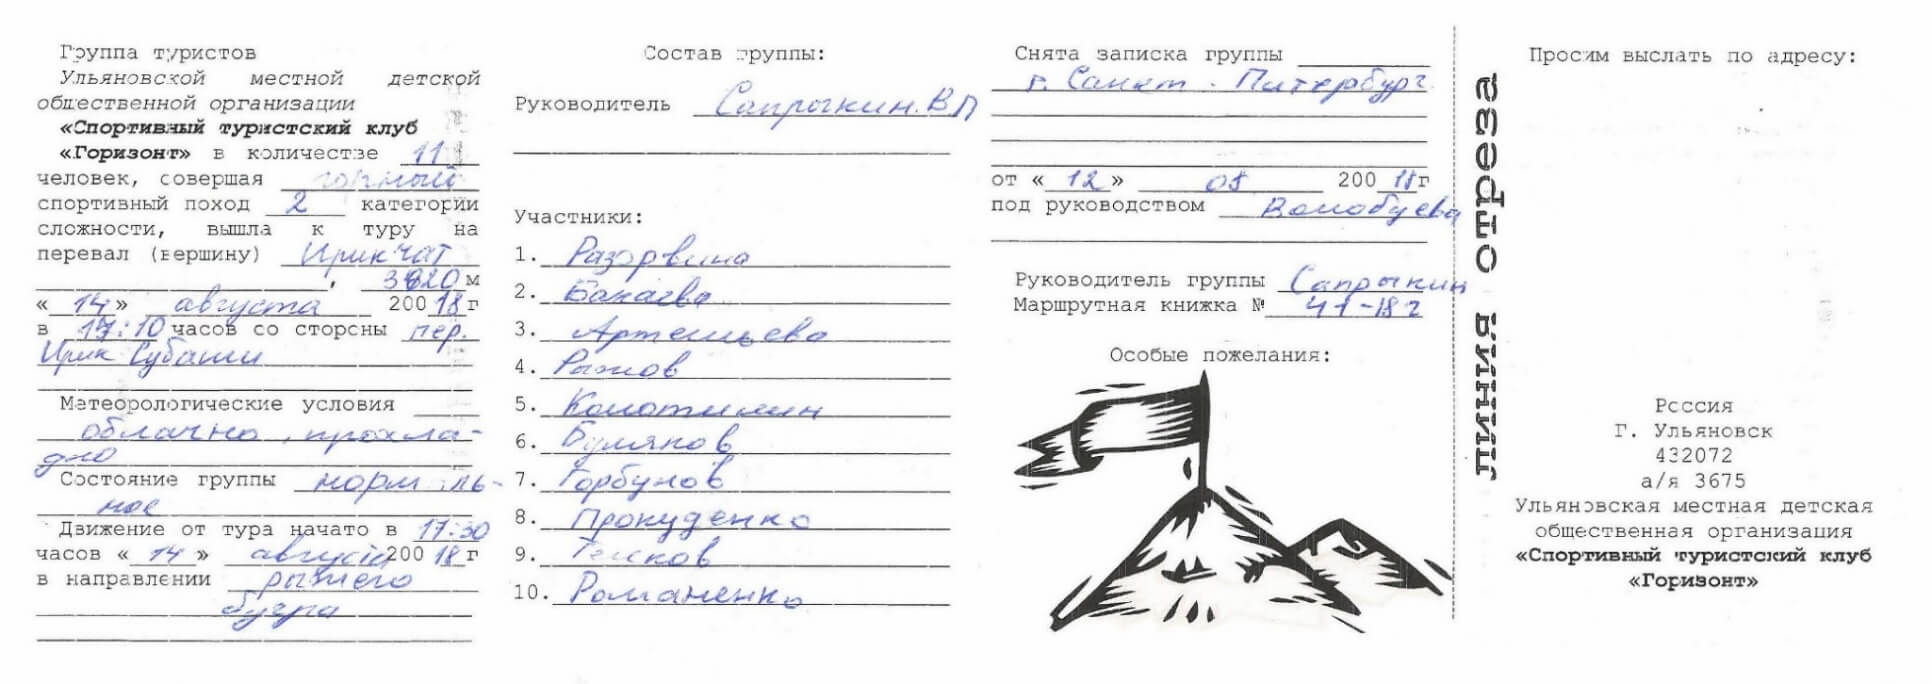 Группа туристов
Ульяновской местной детской
общественной организации
«Спортивный туристский клуб
«Горизонт» в количестве 11
человек, совершая горный
спортивный поход 2 категории
сложности, вышла к туру на
перевал (вершину) Ирикчат
, 3620 м
« 14 » августа 200 18 г
в 17:10 часов со стороны пер.
Ирик Субаши
Метеорологические условия
облачно, прохла-
дно
Состояние группы нормаль-
ное
Движение от тура начато в 17:30
часов « 14 » августа 200 18 г
в направлении рыжего
бугра
Состав группы:
Руководитель Сапрыкин.В.П
Участники:
1. Разорвина
2. Бакаева
3. Артемьева
4. Рыжов
5. Колотилин
6. Буляков
7. Горбунов
8. Прокуденко
9.
10. Романенко
Снята записка группы
г. Санкт - Питербург
от « 12 » 08 200 18 г
под руководством Волобуева
Руководитель группы Сапрыкин
Маршрутная книжка №
Особые пожелания:
линия отреза
Просим выслать по адресу:
Россия
Г. Ульяновск
432072
а/я 3675
Ульяновская местная детская
общественная организация
«Спортивный туристский клуб
«Горизонт»